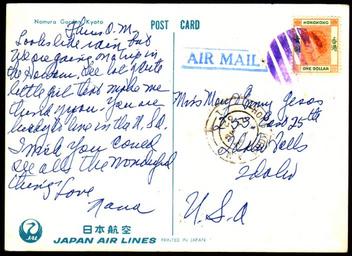 Nomura Garden, Kyoto
POST CARD
Thurs A.M.
Looks like rain, but
we are going on up in
the
See
little girl that make me
think of you. You are
lucky to live in the U.S.A.
I wish you could
see all the wonderful
things. Love
Nana
HONGKONG
香港
ONE DOLLAR
AIR MAIL
Miss Mary
253 East 25th
Idaho Falls
Idaho
U.S.A
JAL
日本航空
JAPAN AIR LINES
PRINTED IN JAPAN